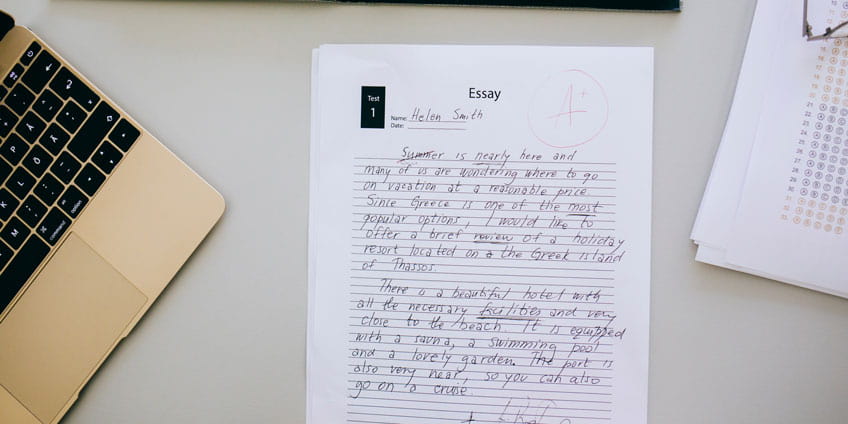 Essay
A+
Test
1
Name: Helen Smith
Date:
Summer is nearly here and
many of us are wondering where to go
on vacation at a reasonable price.
Since Greece is one of the most
popular options, I would like to
offer a brief review of a holiday
resort located on the Greek island
of Thassos.
There is a beautiful hotel with
all the necessary facilities and very
close to the beach. It is equipped
with a sauna, a swimming pool
and a lovely garden. The port is
also very near, so you can also
go on a cruise.
command
option